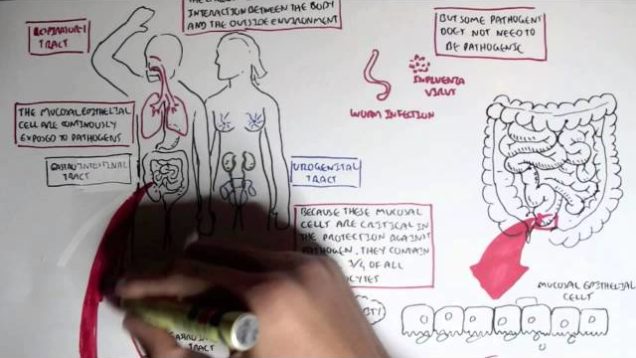 INTERACTION BETWEEN THE BODY
AND THE OUTSIDE ENVIRONMENT
RESPIRATORY
TRACT
THE MUCOSAL EPITHELIAL
CELL ARE CONTINUOUSLY
EXPOSED TO PATHOGENS
GASTROINTESTINAL
TRACT
UROGENITAL
TRACT
BECAUSE THESE MUCOSAL
CELLS ARE CRITICAL IN
THE PROTECTION AGAINST
PATHOGEN, THEY CONTAIN
3/4 OF ALL
TRACT
BUT SOME PATHOGENS
DOES NOT NEED TO
BE PATHOGENIC
INFLUENZA
VIRUS
WORM INFECTION
MUCOSAL EPITHELIAL
CELLS